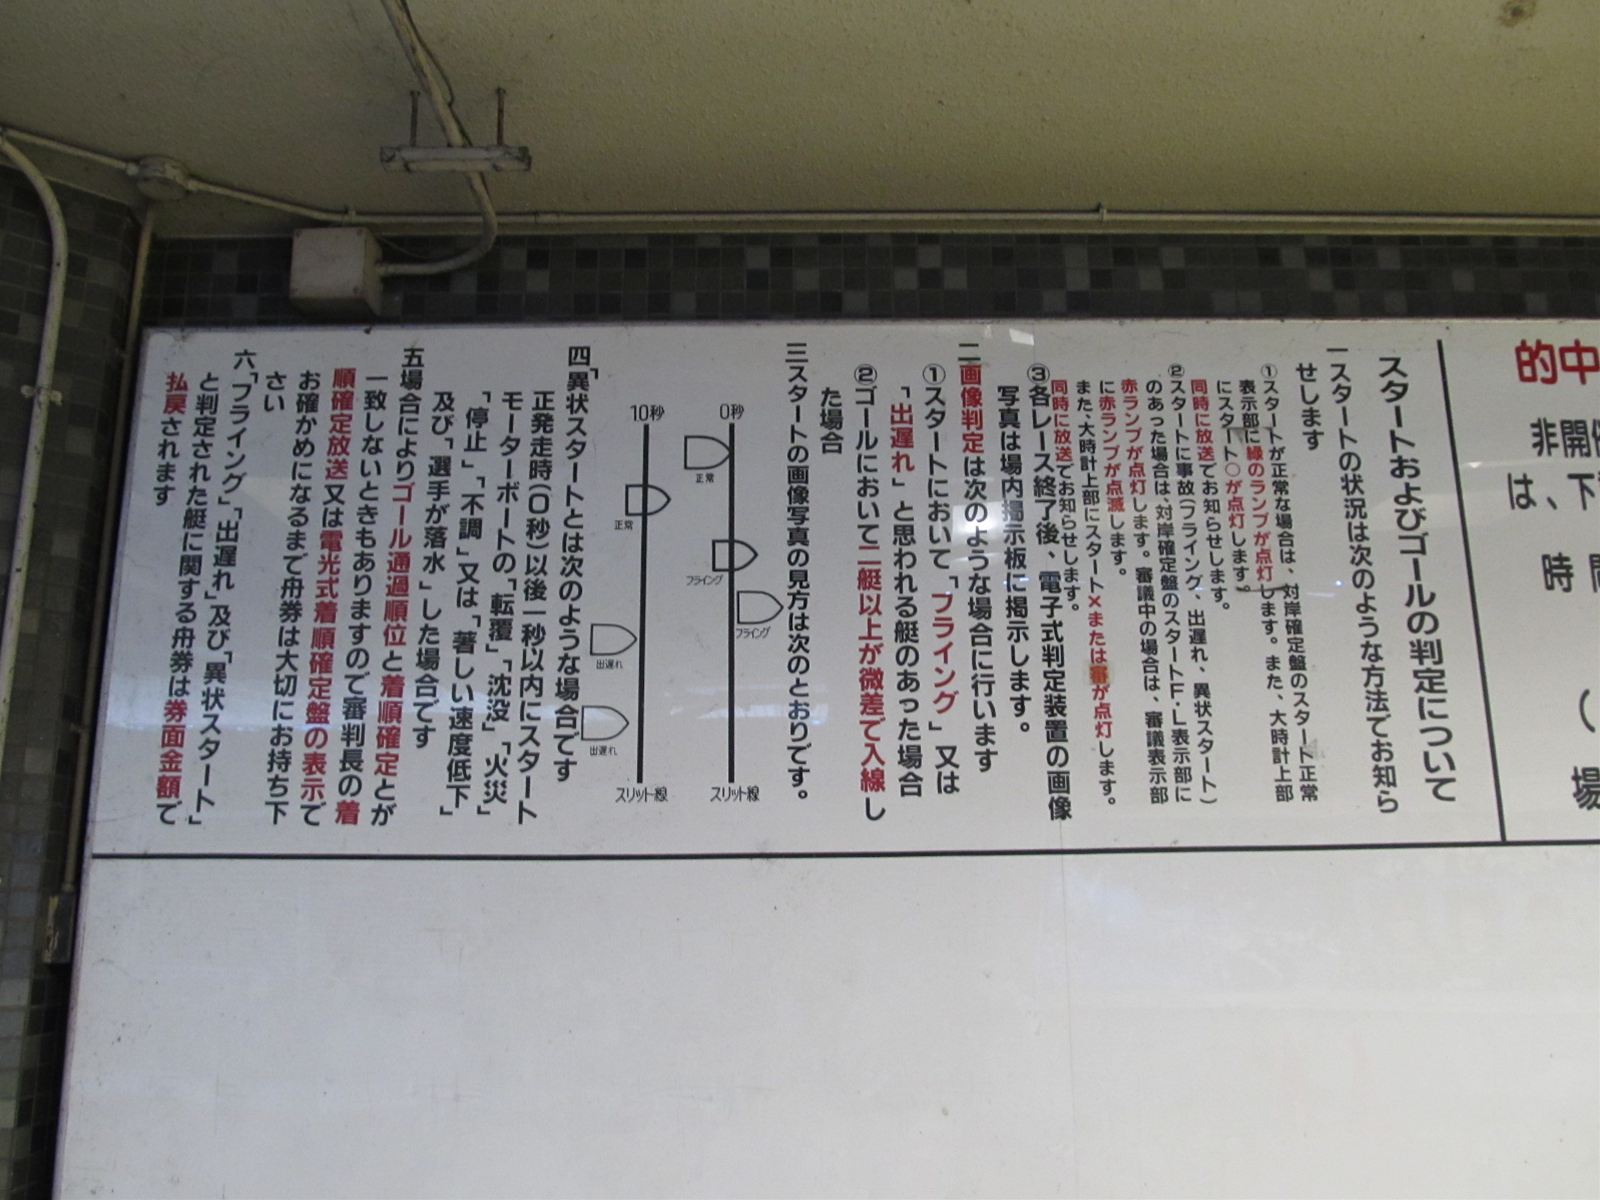 的中
非開催
は、下
時間
（
場
スタートおよびゴールの判定について
一スタートの状況は次のような方法でお知ら
せします
①スタートが正常な場合は、対岸確定盤のスタート正常
表示部に緑のランプが点灯します。また、大時計上部
にスタート○が点灯します。
同時に放送でお知らせします。
②スタートに事故（フライング、出遅れ、異状スタート）
のあった場合は、対岸確定盤のスタートF・L表示部に
赤ランプが点灯します。審議中の場合は、審議表示部
に赤ランプが点滅します。
また、大時計上部にスタート×または審が点灯します。
同時に放送でお知らせします。
③各レース終了後、電子式判定装置の画像
写真は場内掲示板に掲示します。
二画像判定は次のような場合に行います
①スタートにおいて「フライング」又は
「出遅れ」と思われる艇のあった場合
②ゴールにおいて二艇以上が微差で入線し
た場合
三スタートの画像写真の見方は次のとおりです。
0秒
正常
フライング
フライング
スリット線
10秒
正常
出遅れ
出遅れ
スリット線
四「異状スタートとは次のような場合です
正発走時（0秒）以後一秒以内にスタート
モーターボートの「転覆」「沈没」「火災」
「停止」「不調」又は「著しい速度低下」
及び「選手が落水」した場合です
五場合によりゴール通過順位と着順確定とが
一致しないときもありますので審判長の着
順確定放送又は電光式着順確定盤の表示で
お確かめになるまで舟券は大切にお持ち下
さい
六「フライング」「出遅れ」及び「異状スタート」
と判定された艇に関する舟券は券面金額で
払戻されます